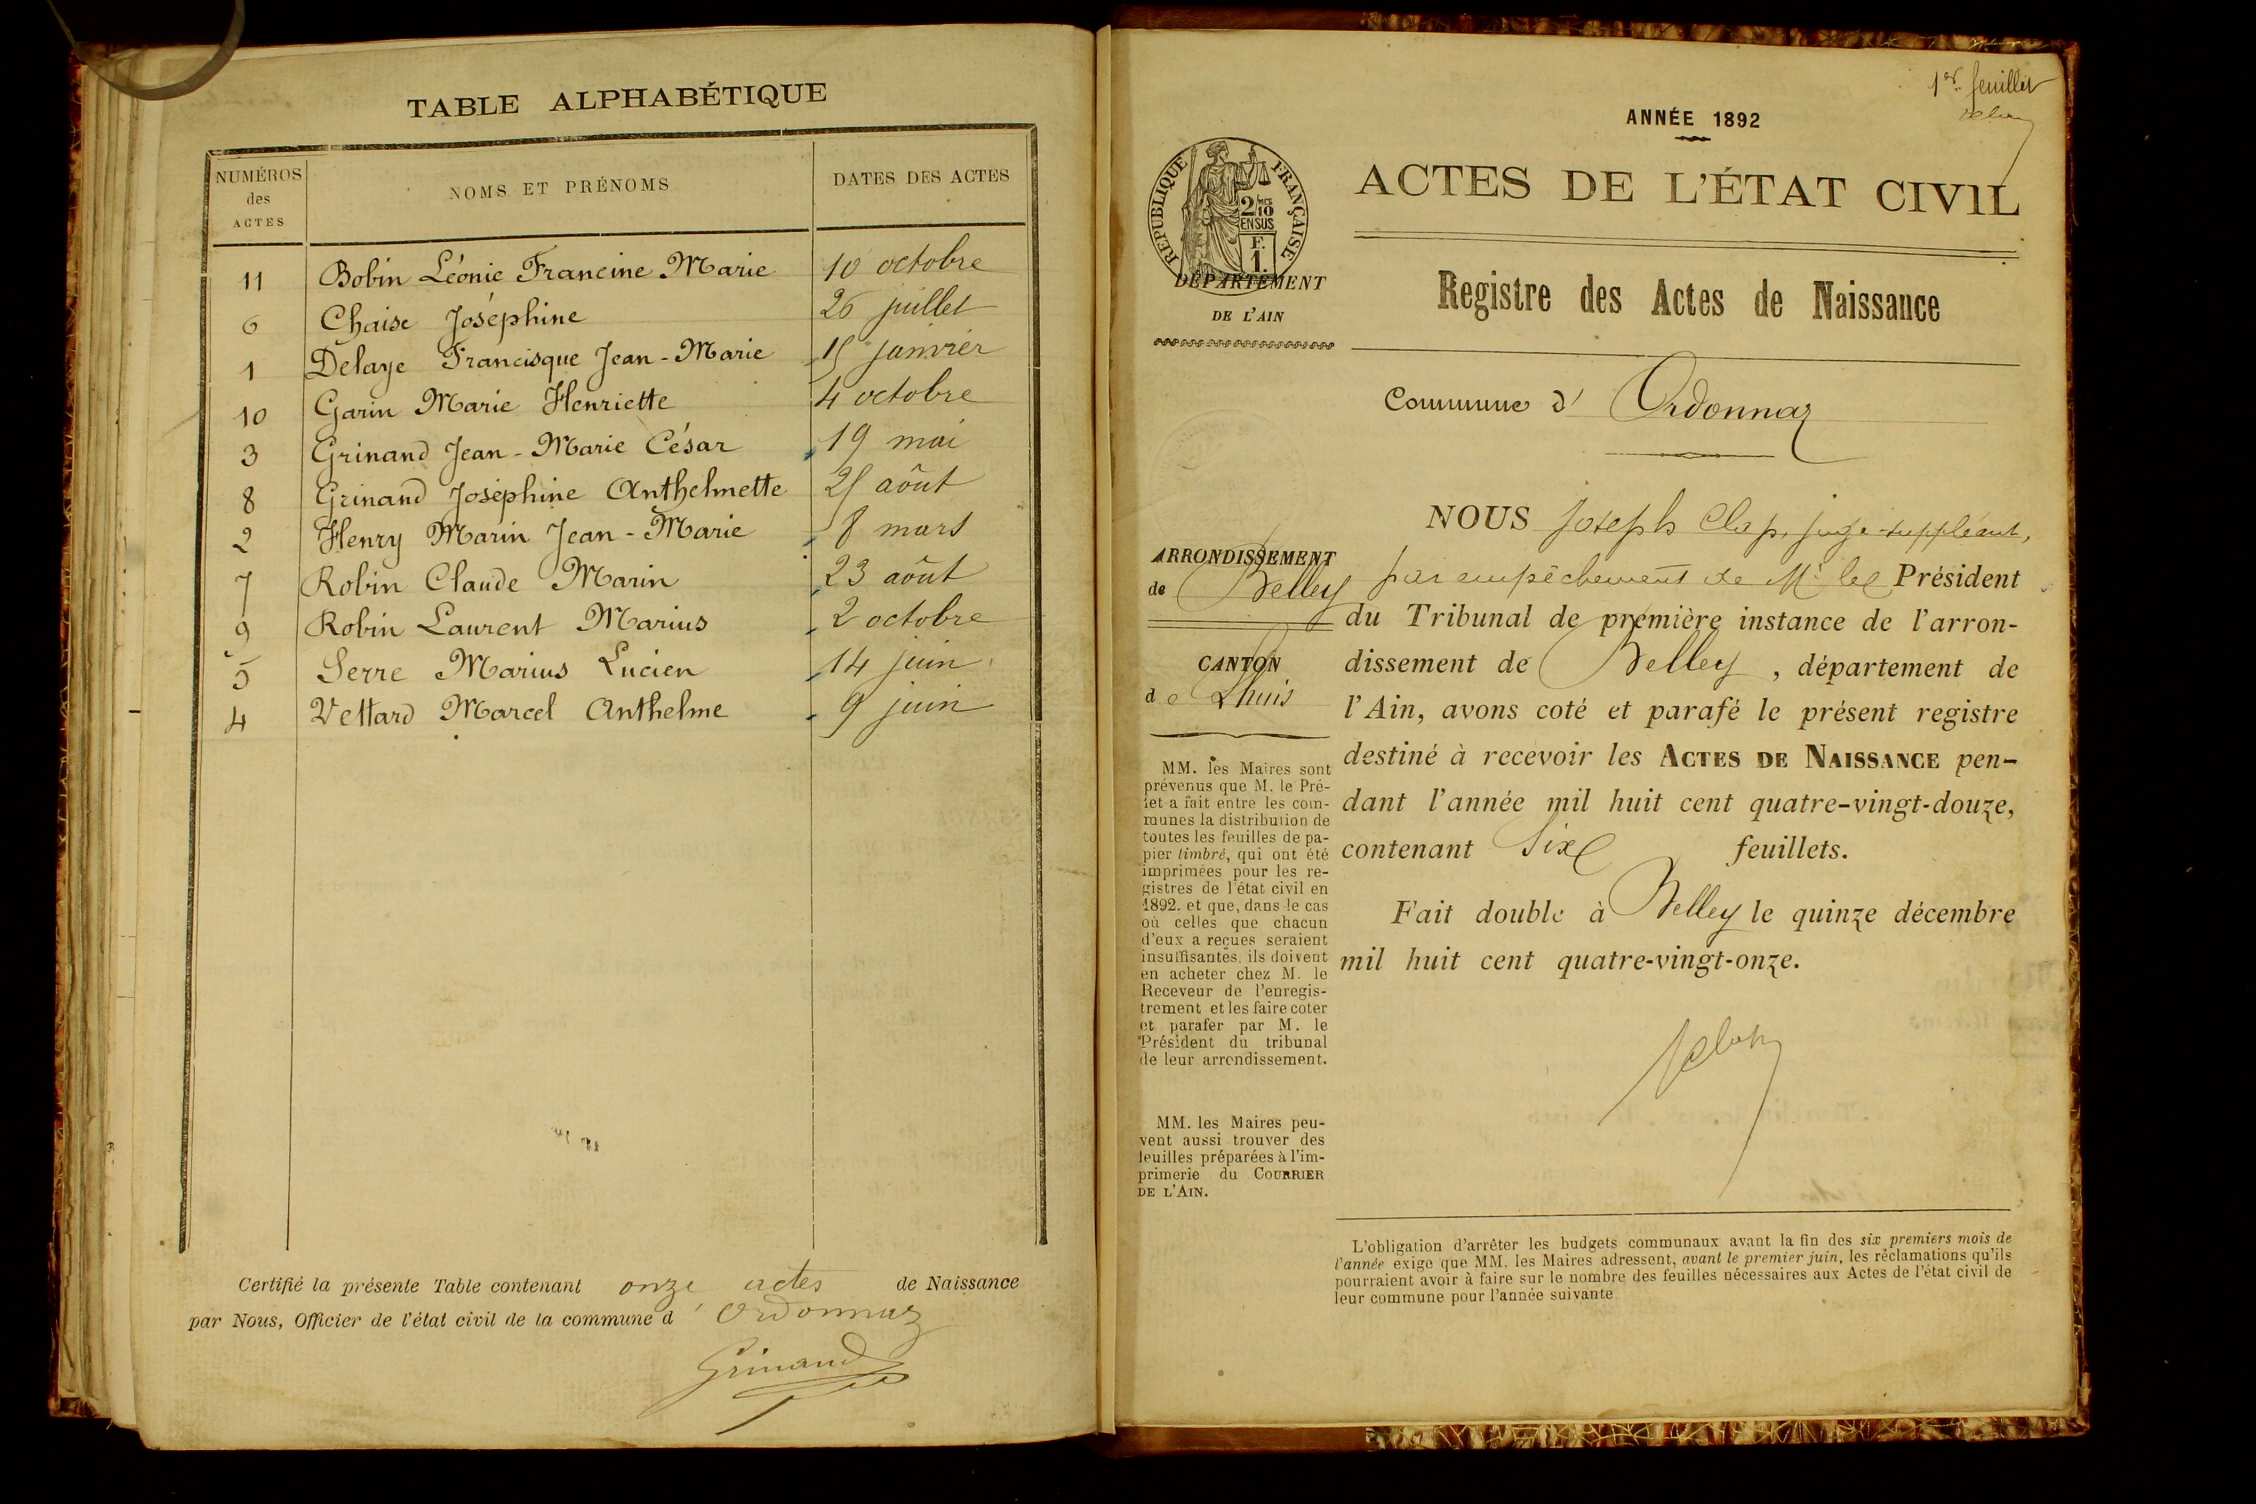 TABLE ALPHABÉTIQUE
NUMÉROS des ACTES NOMS ET PRÉNOMS DATES DES ACTES
11 Bobin Léonie Francine Marie 10 octobre
6 Chaise Joséphine 26 juillet
1 Delaye Francisque Jean-Marie 15 janvier
10 Garin Marie Henriette 4 octobre
3 Grinand Jean-Marie César 19 mai
8 Grinand Joséphine Anthelmette 25 août
2 Henry Marin Jean-Marie 8 mars
7 Robin Claude Marin 23 août
9 Robin Laurent Marius 2 octobre
5 Serre Marius Lucien 14 juin
4 Vettard Marcel Anthelme 9 juin
Certifié la présente Table contenant onze actes de Naissance
par Nous, Officier de l'état civil de la commune d'Ordonnaz
Grinand
1er feuillet
ANNÉE 1892
ACTES DE L'ÉTAT CIVIL
RÉPUBLIQUE FRANÇAISE
2/10
EN SUS
F.
1.
DÉPARTEMENT
DE L'AIN
Registre des Actes de Naissance
Commune d' Ordonnaz
ARRONDISSEMENT
de Belley
CANTON
de Lhuis
MM. les Maires sont
prévenus que M. le Pré-
fet a fait entre les com-
munes la distribution de
toutes les feuilles de pa-
pier timbré, qui ont été
imprimées pour les re-
gistres de l'état civil en
1892. et que, dans le cas
où celles que chacun
d'eux a reçues seraient
insuffisantes, ils doivent
en acheter chez M. le
Receveur de l'enregis-
trement et les faire coter
et parafer par M. le
Président du tribunal
de leur arrondissement.
MM. les Maires peu-
vent aussi trouver des
feuilles préparées à l'im-
primerie du COURRIER
DE L'AIN.
NOUS Joseph Clap, juge-suppléant,
par empêchement de Mr le Président
du Tribunal de première instance de l'arron-
dissement de Belley, département de
l'Ain, avons coté et parafé le présent registre
destiné à recevoir les ACTES DE NAISSANCE pen-
dant l'année mil huit cent quatre-vingt-douze,
contenant six feuillets.
Fait double à Belley le quinze décembre
mil huit cent quatre-vingt-onze.
L'obligation d'arrêter les budgets communaux avant la fin des six premiers mois de
l'année exige que MM. les Maires adressent, avant le premier juin, les réclamations qu'ils
pourraient avoir à faire sur le nombre des feuilles nécessaires aux Actes de l'état civil de
leur commune pour l'année suivante